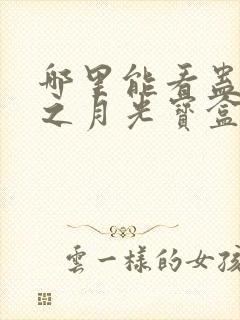 哪里能看蛊
之月光寳盒
雲一樣的女孩